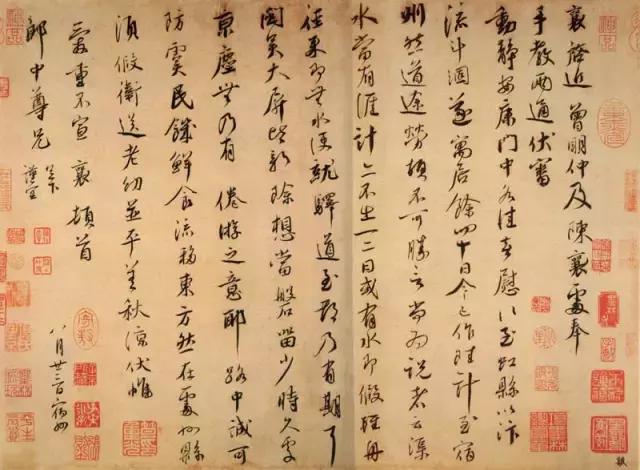 襄啓近曾明仲及陳襄處奉
手教兩通伏審
動靜安康門中各佳喜慰以至虹縣以汴
流斗涸遂寓居餘四十日今已作陸計至宿
州然道途勞頓不可勝言尚為說者云渠
水當有涯計亦不出一二日或有水即假輕舟
徑來即無水便就驛道至都乃有期耳
聞美天屏皆新除想當磐留少時久處
京塵無乃有 倦游之意耶路中誠可
防虞民饑鮮食流移東方然在處州縣
須假衛送老幼並平善秋涼伏惟
愛重不宣 襄 頓首
郎中尊兄
足下
謹空
八月廿二日宿州